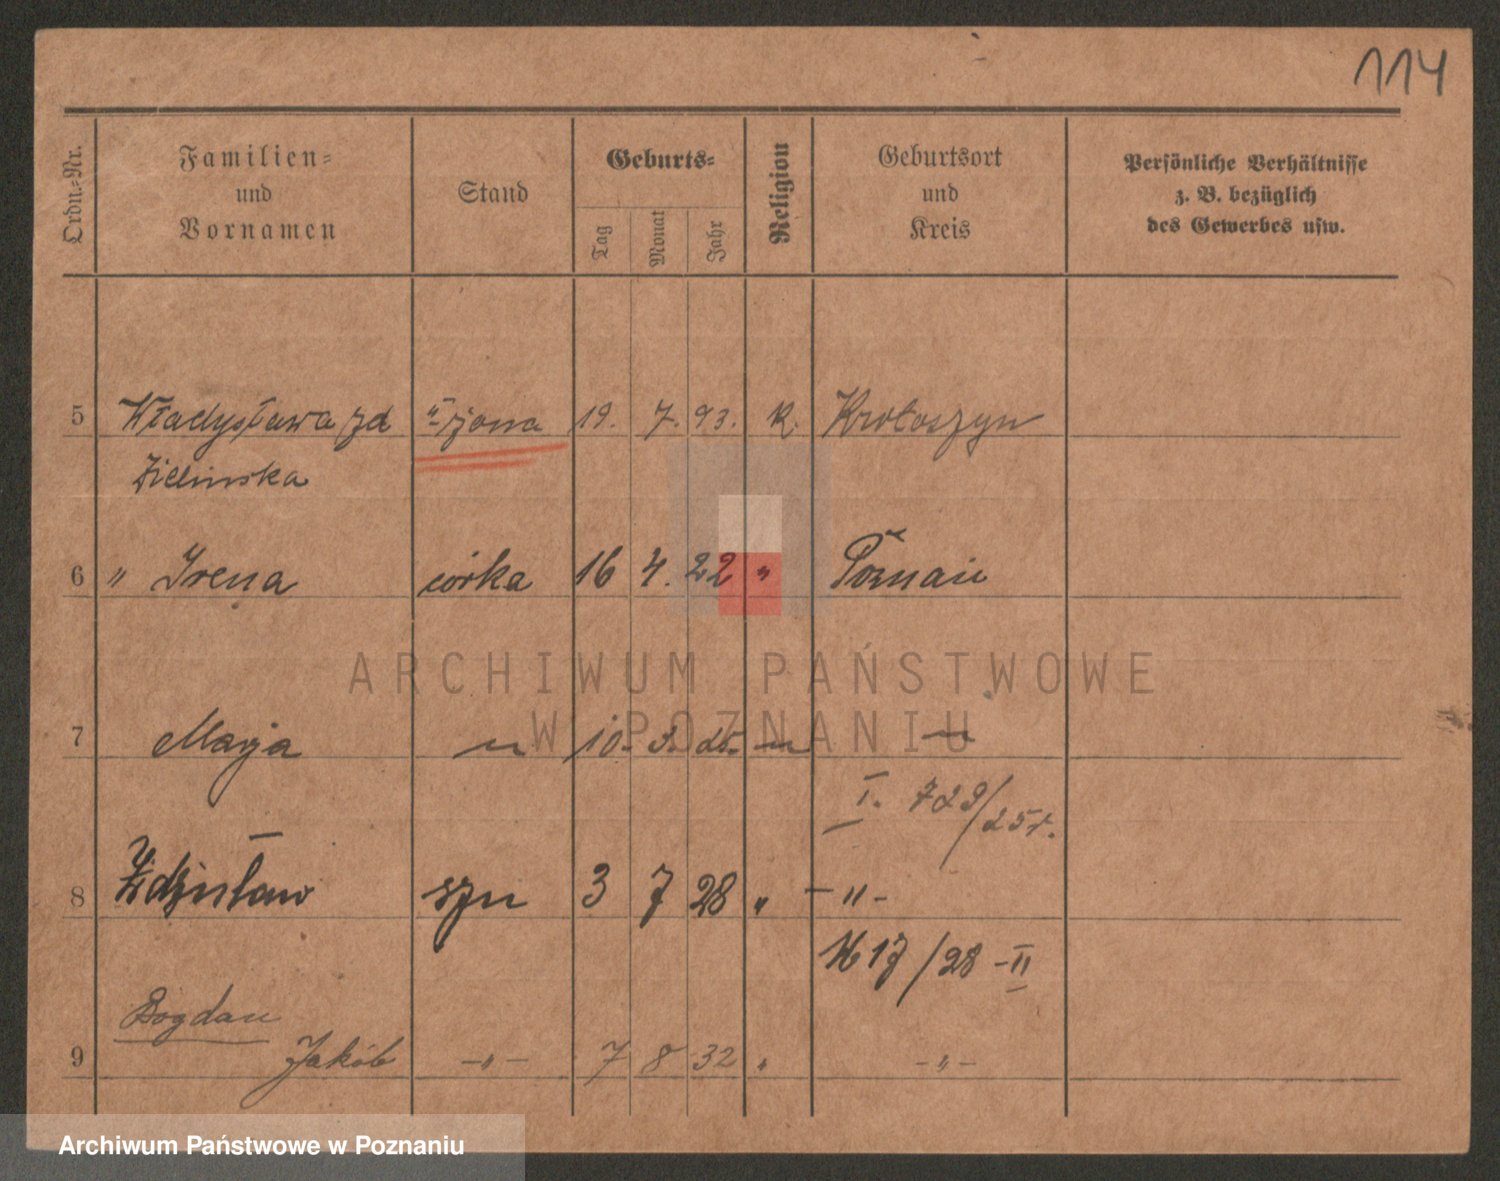 114
Ordn.-Nr.
Familien-
und
Vornamen
Stand
Geburts-
Tag
Monat
Jahr
Religion
Geburtsort
und
Kreis
Persönliche Verhältnisse
z. B. bezüglich
des Gewerbes usw.
5 Władysława zd II żona 19. 7. 93. K. Krotoszyn
Zielinska
6 " Irena córka 16 4. 22 " Poznań
ARCHIWUM PAŃSTWOWE
W POZNANIU
7 Marja — " 10. 3. 25. — " — "
I. 729/25r.
8 Zdzisław syn 3 7 28 " - " -
N 17/28 - II
Bogdan
9 Jakób - " - 7 8 32 " - " -
Archiwum Państwowe w Poznaniu